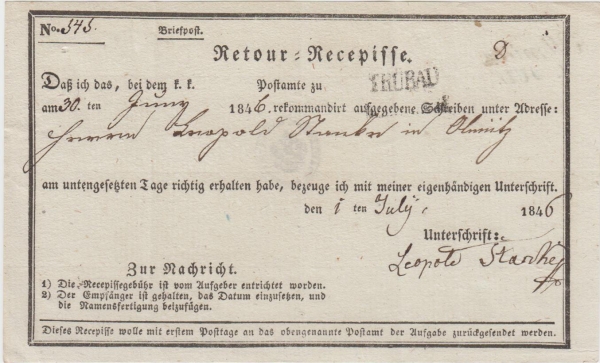 No. 545.
Briefpost.
Retour-Recepisse.
Daß ich das, bei dem k. k. Postamte zu TRÜBAU
am 30. ten Juny 1846. rekommandirt aufgegebene Schreiben unter Adresse:
Herrn Leopold Starke in Olmütz
am untengesetzten Tage richtig erhalten habe, bezeuge ich mit meiner eigenhändigen Unterschrift.
den 1 ten July. 1846
Unterschrift:
Leopold Starke
Zur Nachricht.
1) Die Recepissegebühr ist vom Aufgeber entrichtet worden.
2) Der Empfänger ist gehalten, das Datum einzusetzen, und
die Namensfertigung beizufügen.
Dieses Recepisse wolle mit erstem Posttage an das obengenannte Postamt der Aufgabe zurückgesendet werden.